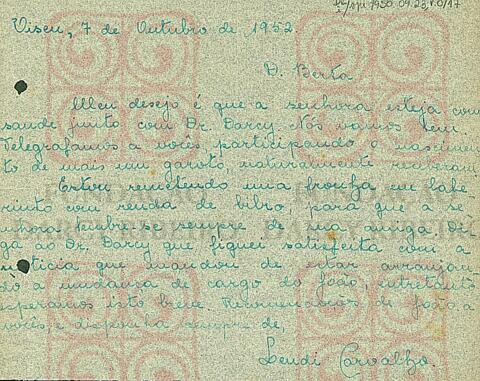 Viseu, 7 de Outubro de 1952.
D. Berta
Meu desejo é que a senhora esteja com
saude junto com Dr. Darcy. Nós vamos bem.
Telegrafamos a vocês, participando o nascimen-
to de mais um garoto, naturalmente receberam.
Estou remetendo uma fronha em labe-
rinto com renda de bilro, para que a se-
nhora lembre-se sempre de sua amiga. Di-
ga ao Dr. Darcy que fiquei satisfeita com a
noticia que mandou de estar arranjan-
do a mudansa de cargo do João, entretanto
esperamos isto breve. Recomendações de João a
vocês, e disponha sempre de,
Leudi Carvalho.